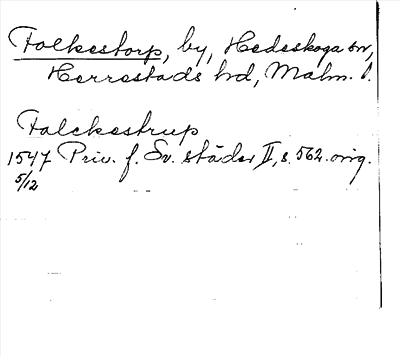 Folkestorp, by, Hedeskoga sn,
Herrestads hd, Malm. l.
Falckestrup
1547 Priv. f. Sv. städer II, s. 562. orig.
5/12